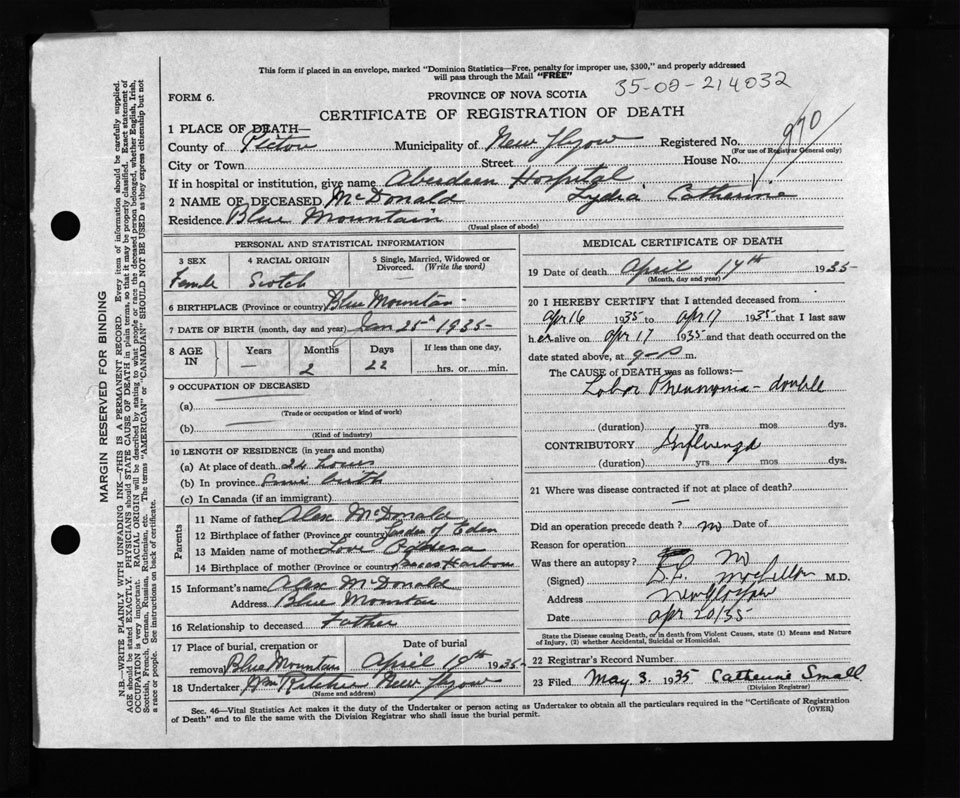 This form if placed in an envelope, marked "Dominion Statistics—Free, penalty for improper use, $300," and properly addressed
will pass through the Mail "FREE"
35-02-214032
FORM 6.
PROVINCE OF NOVA SCOTIA
CERTIFICATE OF REGISTRATION OF DEATH
970
1 PLACE OF DEATH—
County of Pictou Municipality of New Glasgow Registered No.
(For use of Registrar General only)
City or Town Street House No.
If in hospital or institution, give name Aberdeen Hospital
2 NAME OF DECEASED McDonald Lydia Catherine
Residence Blue Mountain
(Usual place of abode)
PERSONAL AND STATISTICAL INFORMATION
3 SEX 4 RACIAL ORIGIN 5 Single, Married, Widowed or Divorced. (Write the word)
Female Scotch
6 BIRTHPLACE (Province or country) Blue Mountain
7 DATE OF BIRTH (month, day and year) Jan 25th 1935
8 AGE IN Years Months Days If less than one day,
— 2 22 hrs. or min.
9 OCCUPATION OF DECEASED
(a)
(Trade or occupation or kind of work)
(b)
(Kind of industry)
10 LENGTH OF RESIDENCE (in years and months)
(a) At place of death 24 hours
(b) In province Since birth
(c) In Canada (if an immigrant)
Parents
11 Name of father Alex McDonald
12 Birthplace of father (Province or country) Garden of Eden
13 Maiden name of mother Love
14 Birthplace of mother (Province or country) Harbour
15 Informant's name Alex McDonald
Address Blue Mountain
16 Relationship to deceased Father
17 Place of burial, cremation or Date of burial
removal Blue Mountain April 19th 1935
18 Undertaker Wm Ritchie New Glasgow
(Name and address)
MEDICAL CERTIFICATE OF DEATH
19 Date of death April 17th 1935
(Month, day and year)
20 I HEREBY CERTIFY that I attended deceased from
Apr 16 1935 to Apr 17 1935 that I last saw
her alive on Apr 17 1935 and that death occurred on the
date stated above, at 9-P m.
The CAUSE of DEATH was as follows:—
Lobar Pneumonia - double
(duration) yrs mos dys.
CONTRIBUTORY Influenza
(duration) yrs mos dys.
21 Where was disease contracted if not at place of death?
—
Did an operation precede death? no Date of
Reason for operation
Was there an autopsy? No
(Signed) M.D.
Address New Glasgow
Date Apr 20/35
State the Disease causing Death, or in death from Violent Causes, state (1) Means and Nature
of Injury, (2) whether Accidental, Suicidal or Homicidal.
22 Registrar's Record Number
23 Filed May 3. 1935 Catherine Small
(Division Registrar)
Sec. 46—Vital Statistics Act makes it the duty of the Undertaker or person acting as Undertaker to obtain all the particulars required in the "Certificate of Registration
of Death" and to file the same with the Division Registrar who shall issue the burial permit. (OVER)
MARGIN RESERVED FOR BINDING
N.B.—WRITE PLAINLY WITH UNFADING INK—THIS IS A PERMANENT RECORD. Every item of information should be carefully supplied.
AGE should be stated EXACTLY. PHYSICIANS should STATE CAUSE OF DEATH in plain terms, so that it may be properly classified. Exact statement of
OCCUPATION is very important. RACIAL ORIGIN will be described by stating to what people or race the deceased person belonged, whether English, Irish,
Scottish, French, German, Russian, Ruthenian, etc. The terms "AMERICAN" or "CANADIAN" SHOULD NOT BE USED as they express citizenship but not
a race or people. See instructions on back of certificate.